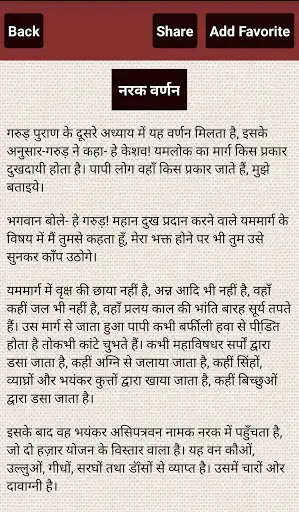 Back Share Add Favorite
नरक वर्णन
गरुड़ पुराण के दूसरे अध्याय में यह वर्णन मिलता है, इसके
अनुसार-गरुड़ ने कहा- हे केशव! यमलोक का मार्ग किस प्रकार
दुखदायी होता है। पापी लोग वहाँ किस प्रकार जाते हैं, मुझे
बताइये।
भगवान बोले- हे गरुड़! महान दुख प्रदान करने वाले यममार्ग के
विषय में मैं तुमसे कहता हूँ, मेरा भक्त होने पर भी तुम उसे
सुनकर काँप उठोगे।
यममार्ग में वृक्ष की छाया नहीं है, अन्न आदि भी नहीं है, वहाँ
कहीं जल भी नहीं है, वहाँ प्रलय काल की भांति बारह सूर्य तपते
हैं। उस मार्ग से जाता हुआ पापी कभी बर्फीली हवा से पीडि़त
होता है तोकभी कांटे चुभते हैं। कभी महाविषधर सर्पों द्वारा
डसा जाता है, कहीं अग्नि से जलाया जाता है, कहीं सिंहों,
व्याघ्रों और भयंकर कुत्तों द्वारा खाया जाता है, कहीं बिच्छुओं
द्वारा डसा जाता है।
इसके बाद वह भयंकर असिपत्रवन नामक नरक में पहुँचता है,
जो दो हज़ार योजन के विस्तार वाला है। यह वन कौओं,
उल्लुओं, गीधों, सरघों तथा डॉंसों से व्याप्त है। उसमें चारों ओर
दावाग्नी है।